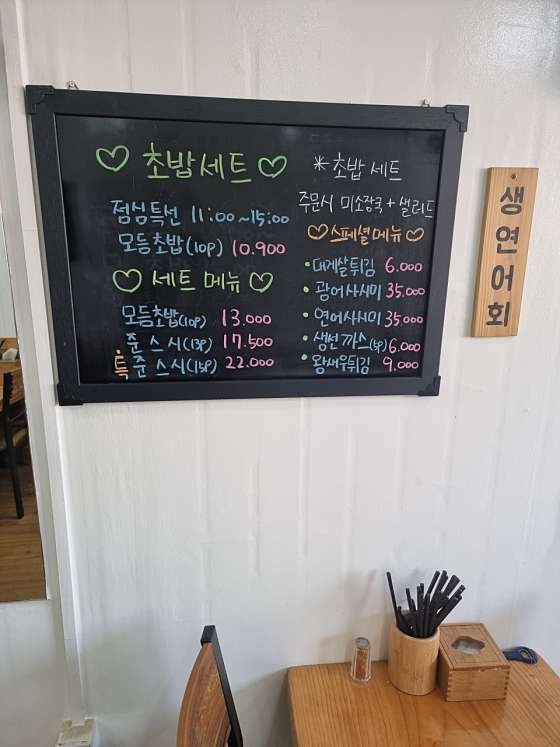 ♡ 초밥세트 ♡
점심특선 11:00~15:00
모듬초밥(10P) 10.900
♡ 세트 메뉴 ♡
모듬초밥(10P) 13.000
준 스시(13P) 17.500
특 준 스시(15P) 22.000
* 초밥 세트
주문시 미소장국 + 샐러드
♡ 스페셜 메뉴 ♡
• 대게살튀김 6.000
• 광어사시미 35.000
• 연어사시미 35.000
• 생선까스(5P) 6.000
• 왕새우튀김 9.000
생연어회